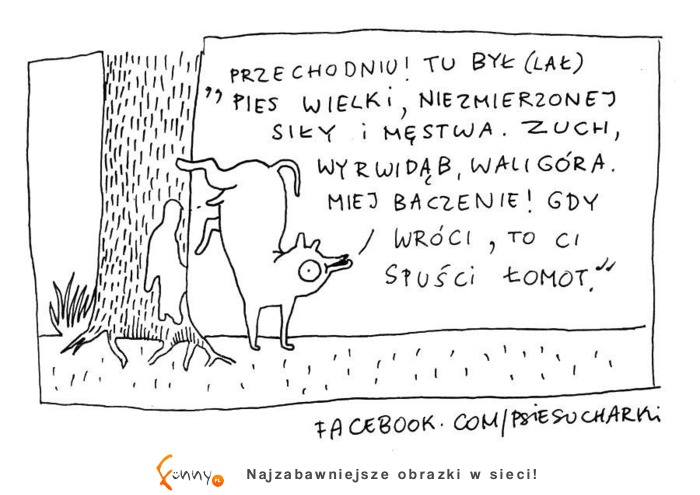 PRZECHODNIU! TU BYŁ (LAŁ)
„PIES WIELKI, NIEZMIERZONEJ
SIŁY I MĘSTWA. ZUCH,
WYRWIDĄB, WALIGÓRA.
MIEJ BACZENIE! GDY
WRÓCI, TO CI
SPUŚCI ŁOMOT.”
FACEBOOK.COM/PSIESUCHARKI
Funny.PL
Najzabawniejsze obrazki w sieci!